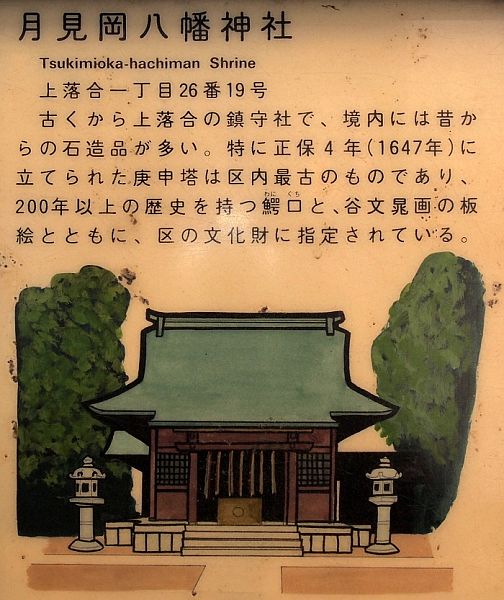 月見岡八幡神社
Tsukimioka-hachiman Shrine
上落合一丁目26番19号
古くから上落合の鎮守社で、境内には昔か
らの石造品が多い。特に正保4年(1647年)に
立てられた庚申塔は区内最古のものであり、
わに ぐち
200年以上の歴史を持つ鰐口と、谷文晁画の板
絵とともに、区の文化財に指定されている。